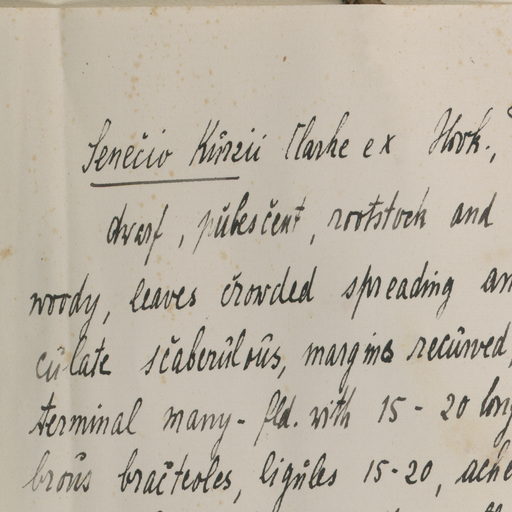 Senecio Kurzii Clarke ex Hook.,
dwarf, pubescent, rootstock and
woody, leaves crowded spreading an
culate scaberulous, margins recurved,
terminal many-fld. with 15-20 long
brous bracteoles, ligules 15-20, ache